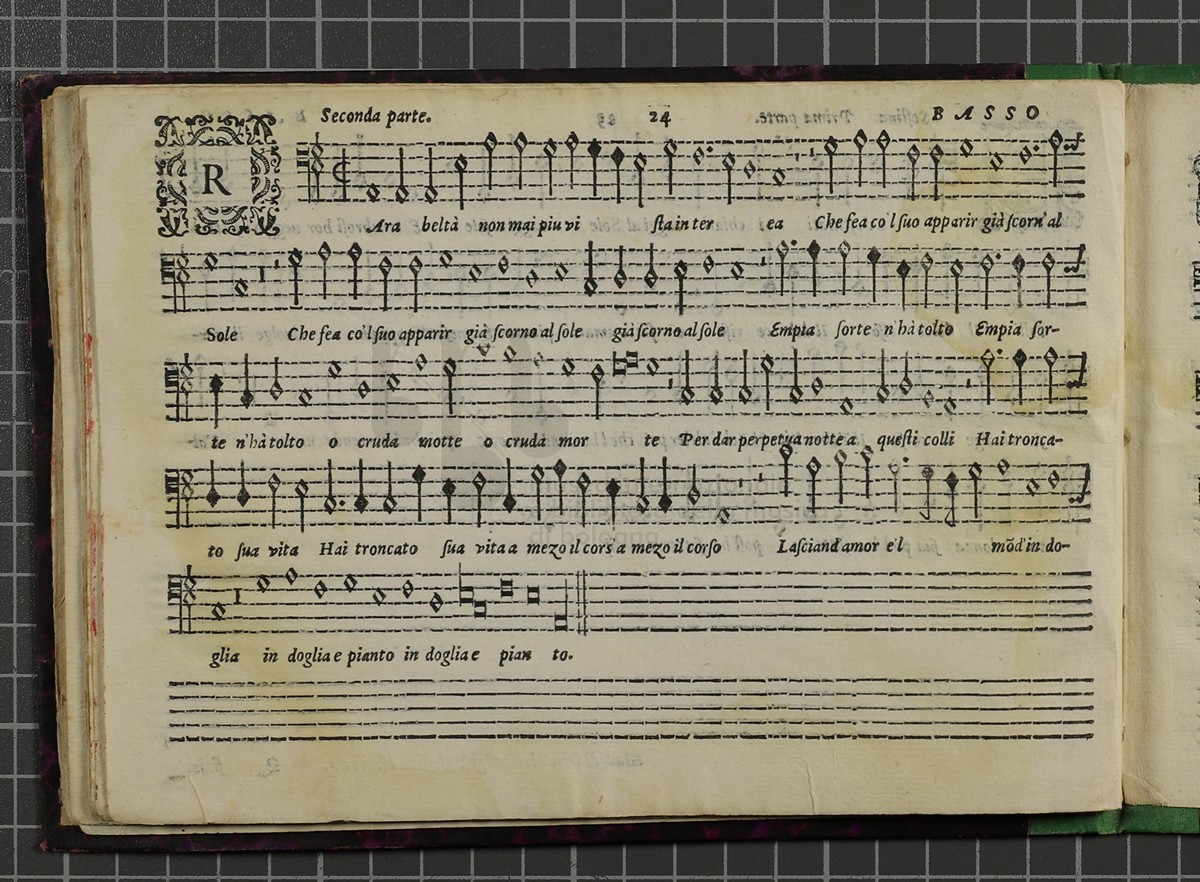 Seconda parte. 24 BASSO
R Ara beltà non mai piu vi sta in ter ea Che fea co'l suo apparir già scorn'al
Sole Che fea co'l suo apparir già scorno al sole già scorno al sole Empia sorte n'hà tolto Empia sor-
te n'hà tolto o cruda motte o cruda mor te Per dar perpetua notte a questi colli Hai tronca-
to sua vita Hai troncato sua vita a mezo il cors'a mezo il corso Lasciand'amor e'l mõd'in do-
glia in doglia e pianto in doglia e pian to.